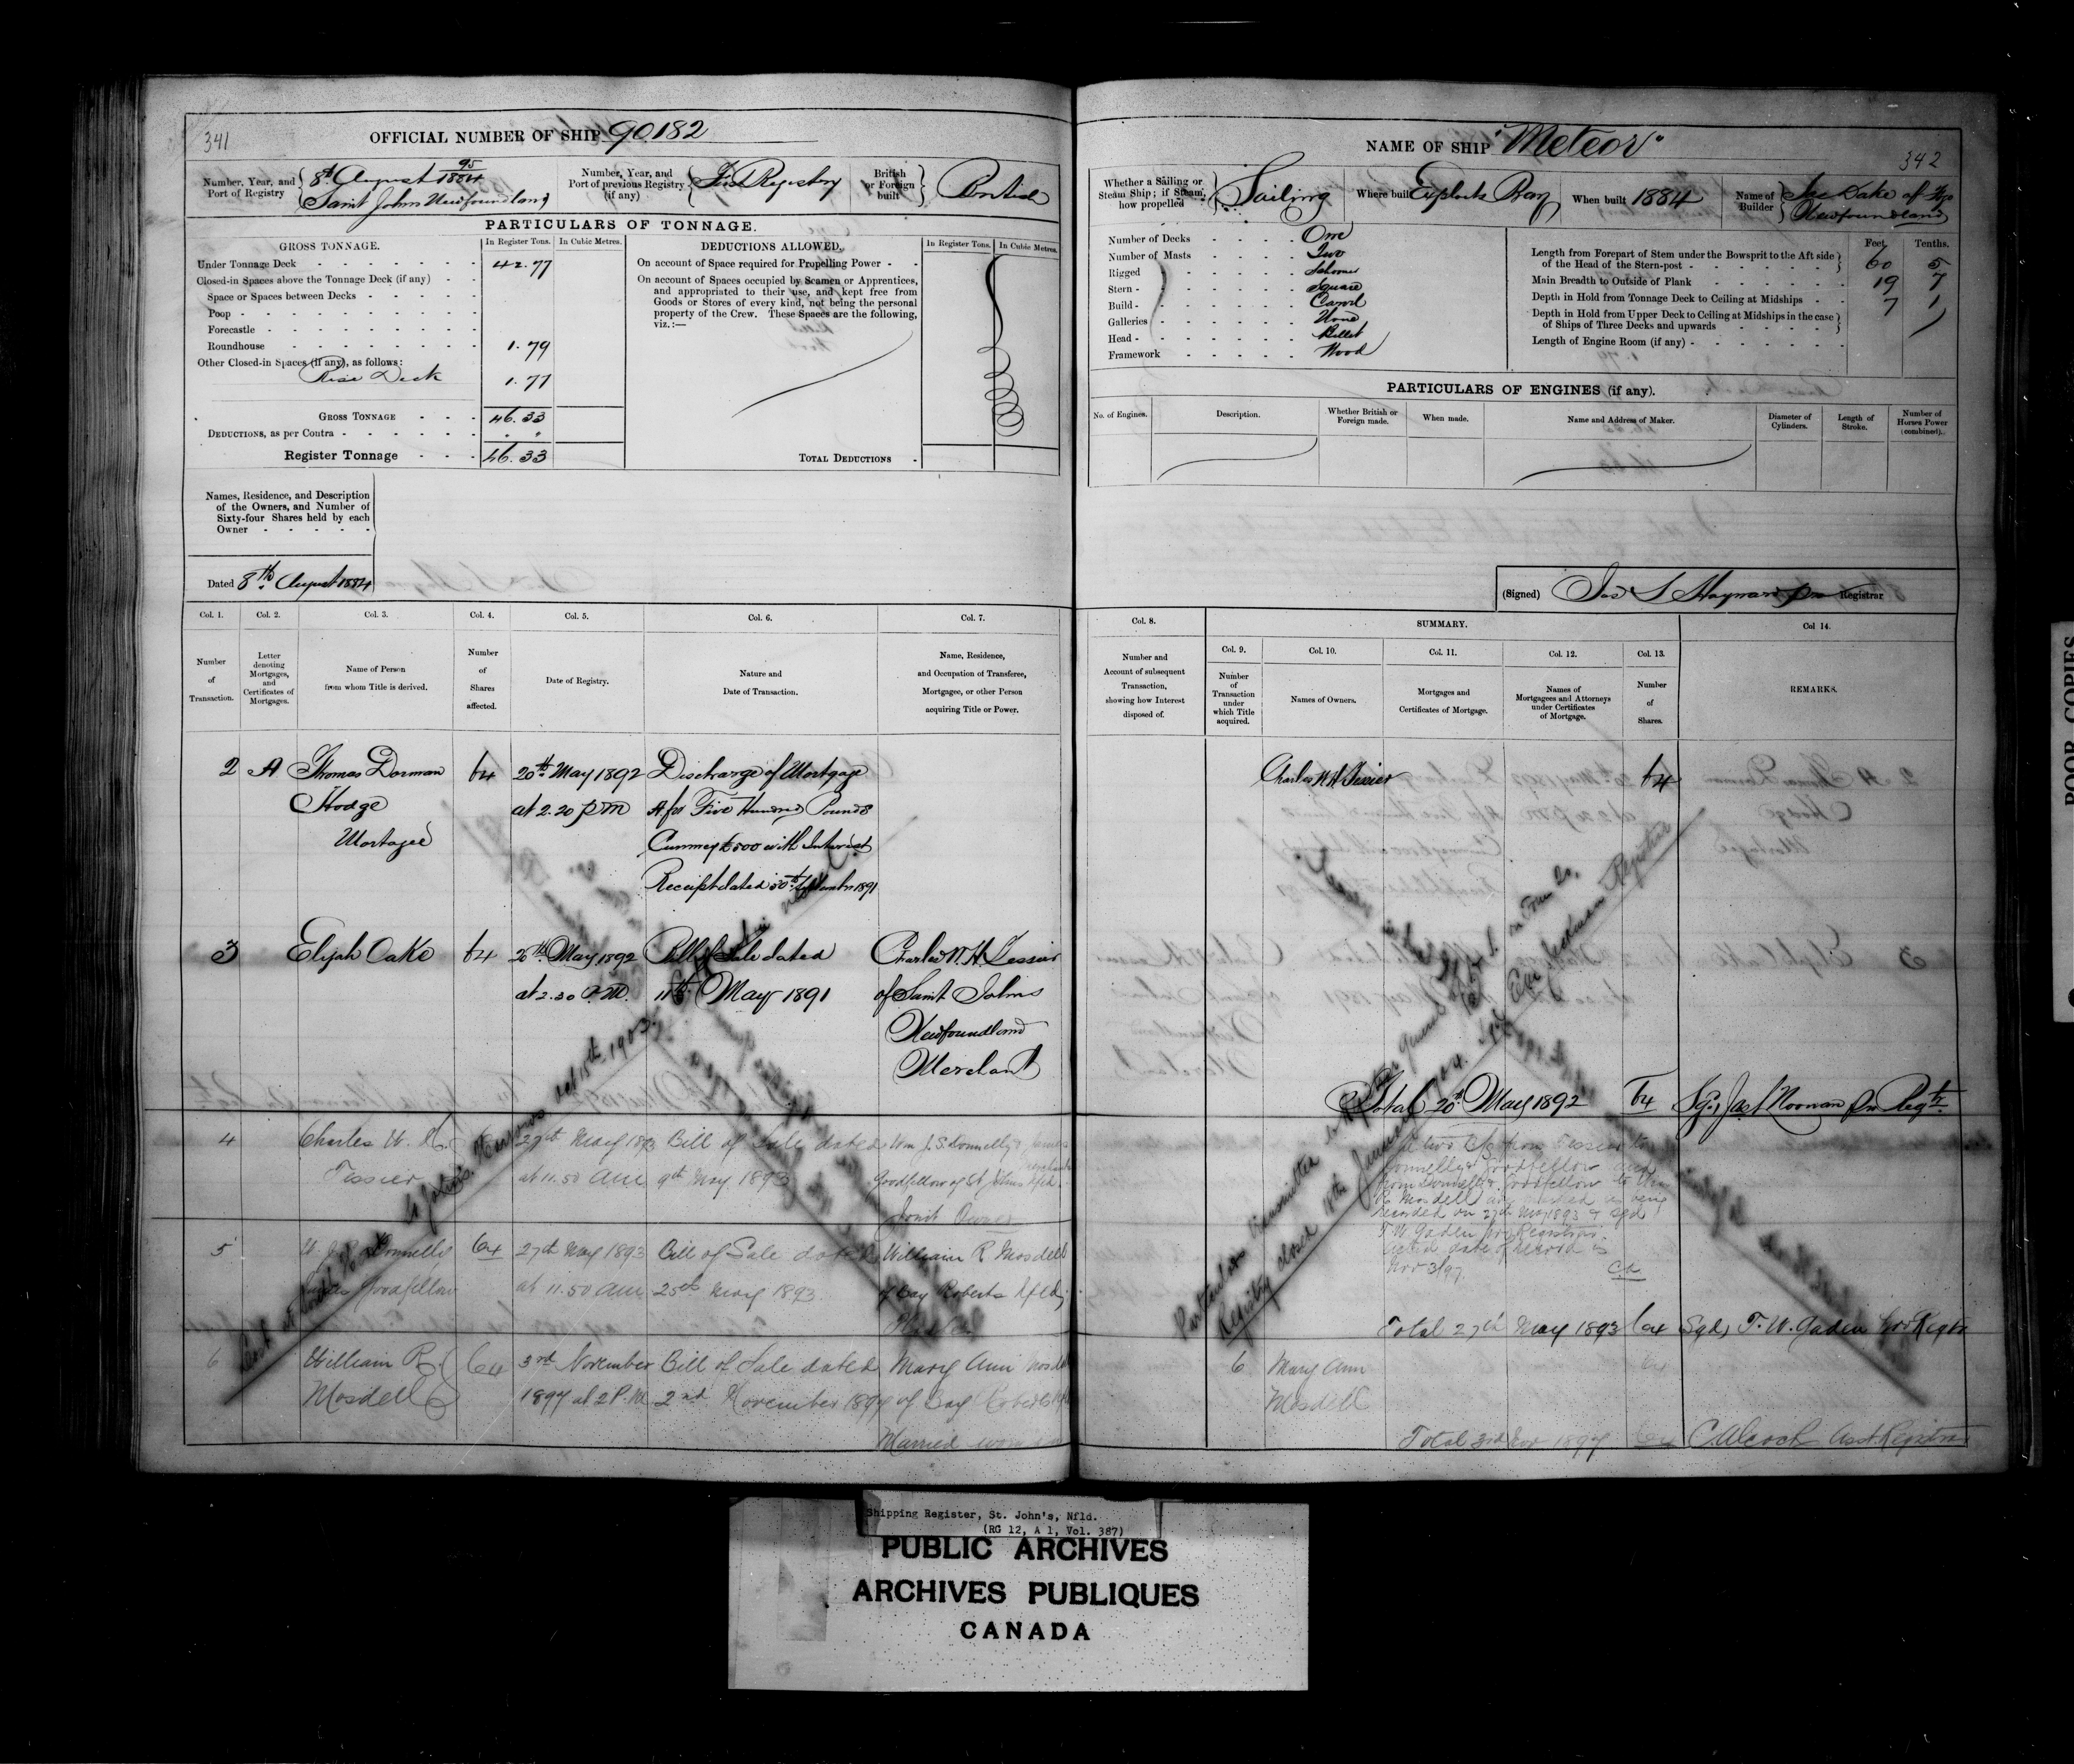 341
OFFICIAL NUMBER OF SHIP 90.182
Number, Year, and Port of Registry
95
8th August 1884
Saint Johns Newfoundland
Number, Year, and Port of previous Registry (if any)
First Registry
British or Foreign built
British
PARTICULARS OF TONNAGE.
GROSS TONNAGE.
In Register Tons.
In Cubic Metres.
Under Tonnage Deck 42.77
Closed-in Spaces above the Tonnage Deck (if any)
Space or Spaces between Decks
Poop
Forecastle
Roundhouse 1.79
Other Closed-in Spaces (if any), as follows:
Rise Deck 1.77
GROSS TONNAGE 46.33
DEDUCTIONS, as per Contra
Register Tonnage 46.33
DEDUCTIONS ALLOWED.
In Register Tons.
In Cubic Metres.
On account of Space required for Propelling Power
On account of Spaces occupied by Seamen or Apprentices,
and appropriated to their use, and kept free from
Goods or Stores of every kind, not being the personal
property of the Crew. These Spaces are the following,
viz.:—
TOTAL DEDUCTIONS
Names, Residence, and Description
of the Owners, and Number of
Sixty-four Shares held by each
Owner
Dated 8th August 1884
Col. 1. Col. 2. Col. 3. Col. 4. Col. 5. Col. 6. Col. 7.
Number of Transaction.
Letter denoting Mortgages, and Certificates of Mortgages.
Name of Person from whom Title is derived.
Number of Shares affected.
Date of Registry.
Nature and Date of Transaction.
Name, Residence, and Occupation of Transferee, Mortgagee, or other Person acquiring Title or Power.
2 A Thomas Dorman 64 20th May 1892 Discharge of Mortgage
Hodge at 2.20 pm A for Five Hundred Pounds
Mortagee Currency £500 with Interest
Receipt dated 30th September 1891
3 Elijah Oake 64 20th May 1892 Bill of Sale dated Charles W. H. Tessier
at 2.30 P.M. 11th May 1891 of Saint Johns
Newfoundland
Merchant
4 Charles W. H. 27th May 1893 Bill of Sale dated Wm J. S. Donnelly & James
Tessier at 11.50 AM 9th May 1893 Goodfellow of St Johns Nfld
Joint Owners
5 W. J. S. Donnelly 64 27th May 1893 Bill of Sale dated William R Mosdell
James Goodfellow at 11.50 AM 25th May 1893 of Bay Roberts Nfld
6 William R. 64 3rd November Bill of Sale dated Mary Ann Mosdell
Mosdell 1897 at 2 P.M. 2nd November 1897 of Bay Roberts
Married
Lost at
Oct 15th 1903
342
NAME OF SHIP "Meteor"
Whether a Sailing or Steam Ship; if Steam, how propelled
Sailing
Where built Exploits Bay
When built 1884
Name of Builder
Newfoundland
Number of Decks One
Number of Masts Two
Rigged Schooner
Stern Square
Build Carvel
Galleries None
Head Billet
Framework Wood
Feet. Tenths.
Length from Forepart of Stem under the Bowsprit to the Aft side
of the Head of the Stern-post 60 5
Main Breadth to Outside of Plank 19 7
Depth in Hold from Tonnage Deck to Ceiling at Midships 7 1
Depth in Hold from Upper Deck to Ceiling at Midships in the case
of Ships of Three Decks and upwards
Length of Engine Room (if any)
PARTICULARS OF ENGINES (if any).
No. of Engines.
Description.
Whether British or Foreign made.
When made.
Name and Address of Maker.
Diameter of Cylinders.
Length of Stroke.
Number of Horses Power (combined).
(Signed) Jas S Hayward pro Registrar
Col. 8. SUMMARY. Col 14.
Col. 9. Col. 10. Col. 11. Col. 12. Col. 13.
Number and Account of subsequent Transaction, showing how Interest disposed of.
Number of Transaction under which Title acquired.
Names of Owners.
Mortgages and Certificates of Mortgage.
Names of Mortgagees and Attorneys under Certificates of Mortgage.
Number of Shares.
REMARKS.
Charles W H Tessier 64
Total 20th May 1892 64 Sgd Jas L Noonan pro Regtr.
Donnelly & Goodfellow and
from Donnelly & Goodfellow to Wm
R Mosdell are marked as being
recorded on 27th May 1893 & sgd
T. W. Gaden pro Registrar.
Actual date of record is
Nov 3/97. C.A.
Total 27th May 1893 64 Sgd, T. W. Gaden pro Regtr
6 Mary Ann 64
Mosdell
Total 3rd Nov 1897 64 C. Alcock Asst. Registrar
Registry closed 18th January 1904.
Registrar
POOR COPIES
Shipping Register, St. John's, Nfld.
(RG 12, A 1, Vol. 387)
PUBLIC ARCHIVES
ARCHIVES PUBLIQUES
CANADA